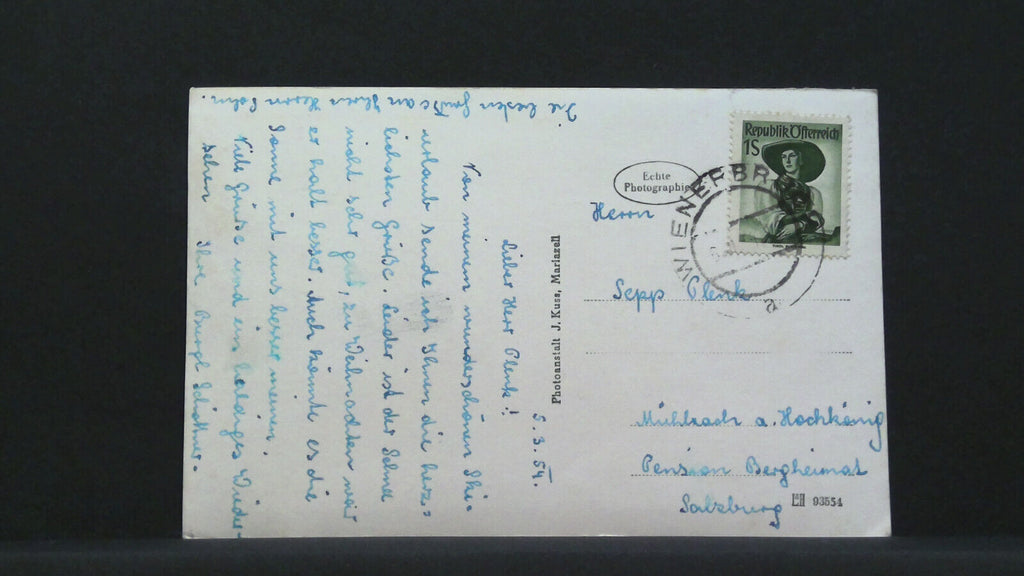 5.3.54.
Lieber Herr Plenk!
Von meinem wunderschönen Ski-
urlaub sende ich Ihnen die herz-
lichsten Grüße. Leider ist der Schnee
nicht sehr gut, zu Weihnachten war
er halt besser. Auch könnte es die
Sonne mit uns besser meinen.
Viele Grüße und ein baldiges Wieder-
sehen Ihre Burgl
Die besten Grüße an Ihren Herrn Sohn.
Photoanstalt J. Kuss, Mariazell
Echte
Photographie
Republik Österreich
1S
WIENERBR
a
Herrn
Sepp Plenk
Mühlbach a. Hochkönig
Pension Bergheimat
Salzburg
93554